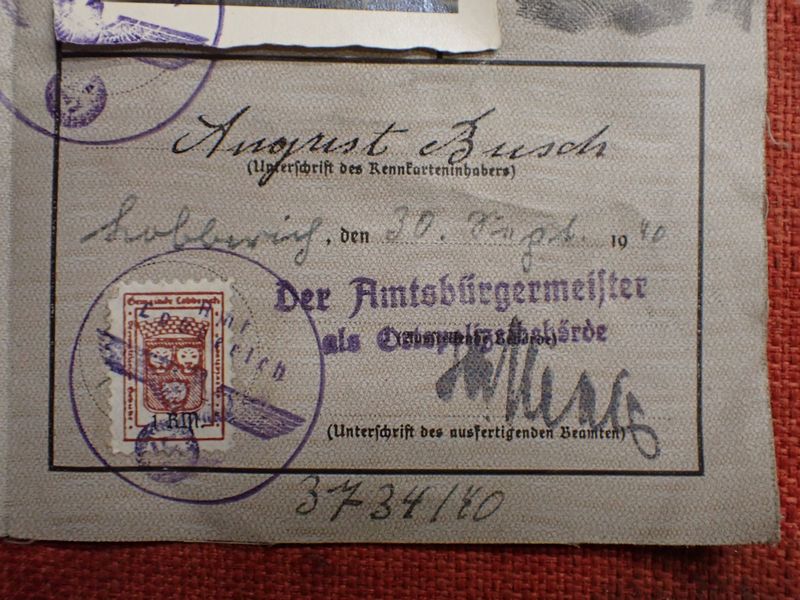 August Busch
(Unterschrift des Kennkarteninhabers)
Lobberich, den 30. Sept. 1940
Der Amtsbürgermeister
als Ortspolizeibehörde
(Ausstellende Behörde)
Gemeinde Lobberich
Amt
Lobberich
1 RM
(Unterschrift des ausfertigenden Beamten)
3734/40